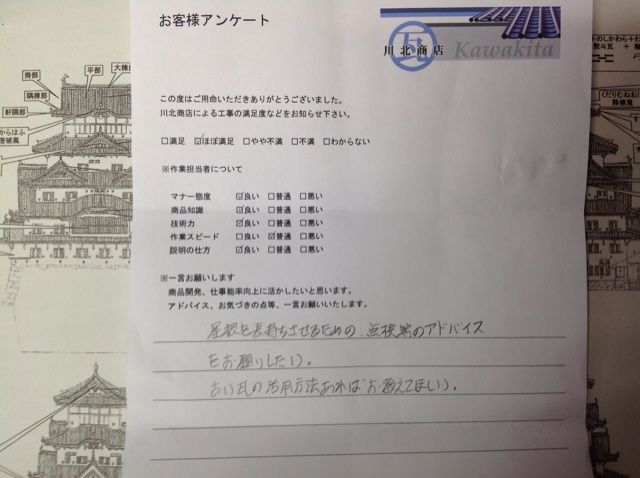 お客様アンケート
瓦
川北商店 Kawakita
この度はご用命いただきありがとうございました。
川北商店による工事の満足度などをお知らせ下さい。
□満足 ☑ほぼ満足 □やや不満 □不満 □わからない
※作業担当者について
マナー態度 ☑良い □普通 □悪い
商品知識 ☑良い □普通 □悪い
技術力 ☑良い □普通 □悪い
作業スピード □良い ☑普通 □悪い
説明の仕方 ☑良い □普通 □悪い
※一言お願いします
商品開発、仕事能率向上に活かしたいと思います。
アドバイス、お気づきの点等、一言お願いいたします。
屋根を長持ちさせるための、点検等のアドバイス
をお願りしたい。
古い瓦の活用方法あればお教えてほしい。
掛部
平部
大棟部
隅棟部
軒隅部
からはふ
唐破風
+のしかわら+わ
熨斗瓦
くだりむねお